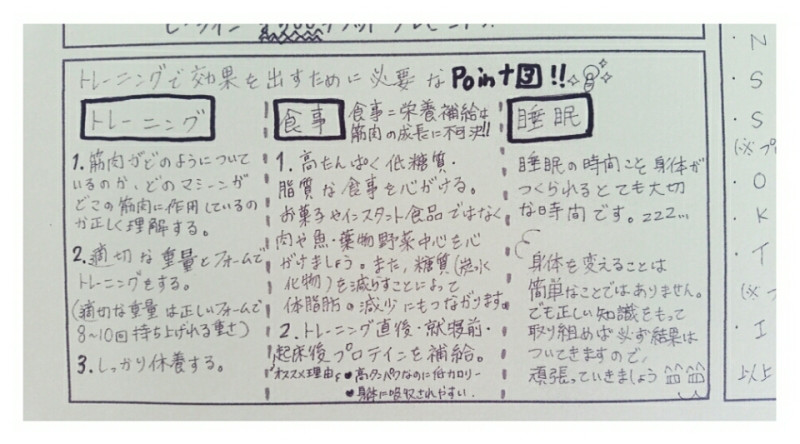 トレーニングで効果を出すために必要なPoint3!!
トレーニング
1.筋肉がどのようについて
いるのか、どのマシーンが
どこの筋肉に作用しているの
か正しく理解する。
2.適切な重量とフォームで
トレーニングをする。
(適切な重量は正しいフォームで
8~10回持ち上げれる重さ)
3.しっかり休養する。
食事
食事=栄養補給は
筋肉の成長に不可決!!
1.高たんぱく低糖質・
脂質な食事を心がける。
お菓子やインスタント食品ではなく
肉や魚・葉物野菜中心を心
がけましょう。また、糖質(炭水
化物)を減らすことによって
体脂肪の減少にもつながります。
2.トレーニング直後・就寝前・
起床後プロテインを補給。
オススメ理由
●高タンパクなのに低カロリー
●身体に吸収されやすい.
睡眠
睡眠の時間こそ身体が
つくられるとても大切
な時間です。zzz...
身体を変えることは
簡単なことではありません。
でも正しい知識をもって
取り組めば必ず結果は
ついてきますので、
頑張っていきましょう
・N
・S
・S
(※プ
・O
・K
・T
(※プ
・I
以上